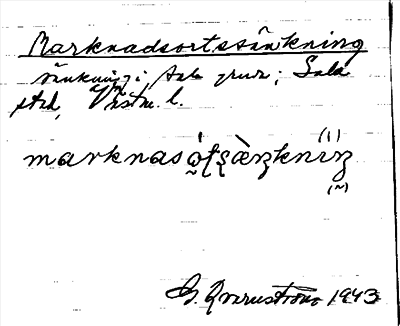 Marknadsortssänkning
sänkning i Sala gruva; Sala
stad, Västm. l.
marknaso̯ʈʂæ̀ŋknıŋ
G. Kvarnström 1943